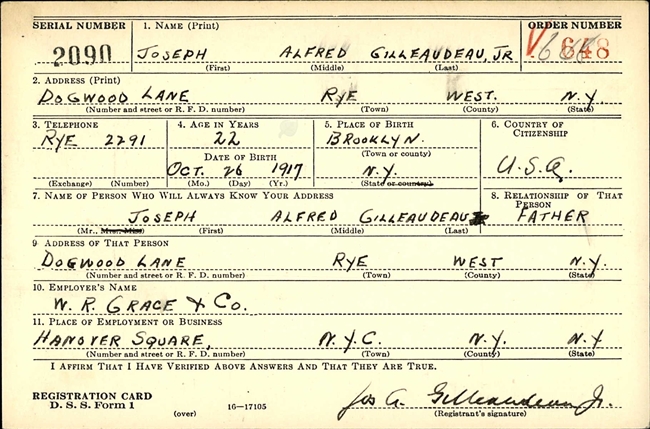 SERIAL NUMBER 1. NAME (Print) ORDER NUMBER
2090 JOSEPH ALFRED GILLEAUDEAU, JR V 648
(First) (Middle) (Last)
2. ADDRESS (Print)
DOGWOOD LANE RYE WEST. N.Y.
(Number and street or R. F. D. number) (Town) (County) (State)
3. TELEPHONE 4. AGE IN YEARS 5. PLACE OF BIRTH 6. COUNTRY OF CITIZENSHIP
RYE 2291 22 BROOKLYN
DATE OF BIRTH (Town or county)
OCT. 26 1917 N.Y. U.S.A.
(Exchange) (Number) (Mo.) (Day) (Yr.) (State or country)
7. NAME OF PERSON WHO WILL ALWAYS KNOW YOUR ADDRESS 8. RELATIONSHIP OF THAT PERSON
JOSEPH ALFRED GILLEAUDEAU FATHER
(Mr., Mrs., Miss) (First) (Middle) (Last)
9 ADDRESS OF THAT PERSON
DOGWOOD LANE RYE WEST N.Y.
(Number and street or R. F. D. number) (Town) (County) (State)
10. EMPLOYER'S NAME
W. R. GRACE & CO.
11. PLACE OF EMPLOYMENT OR BUSINESS
HANOVER SQUARE, N.Y.C. N.Y. N.Y
(Number and street or R. F. D. number) (Town) (County) (State)
I AFFIRM THAT I HAVE VERIFIED ABOVE ANSWERS AND THAT THEY ARE TRUE.
REGISTRATION CARD
D. S. S. Form 1 (over) 16—17105 Jos A. Gilleaudeau Jr.
(Registrant's signature)